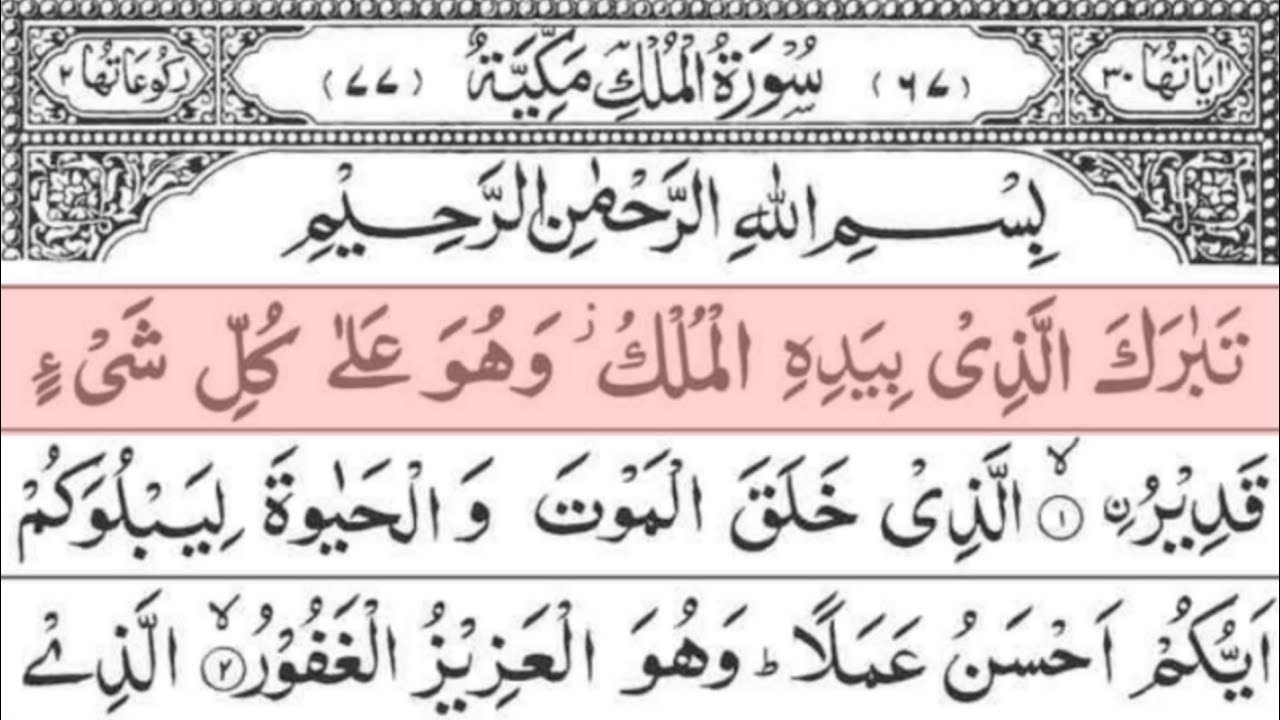 اٰيَاتُهَا ٣٠ (٦٧) سُوْرَةُ الْمُلْكِ مَكِّيَّةٌ (٧٧) رُكُوْعَاتُهَا ٢
بِسْمِ اللّٰهِ الرَّحْمٰنِ الرَّحِيْمِ
تَبٰرَكَ الَّذِىْ بِيَدِهِ الْمُلْكُ ز وَهُوَ عَلٰى كُلِّ شَىْءٍ
قَدِيْرُ نِ ۙ‏﴿۱﴾ الَّذِىْ خَلَقَ الْمَوْتَ وَالْحَيٰوةَ لِيَبْلُوَكُمْ
اَيُّكُمْ اَحْسَنُ عَمَلًا ؕ وَهُوَ الْعَزِيْزُ الْغَفُوْرُ ۙ‏﴿۲﴾ الَّذِىْ